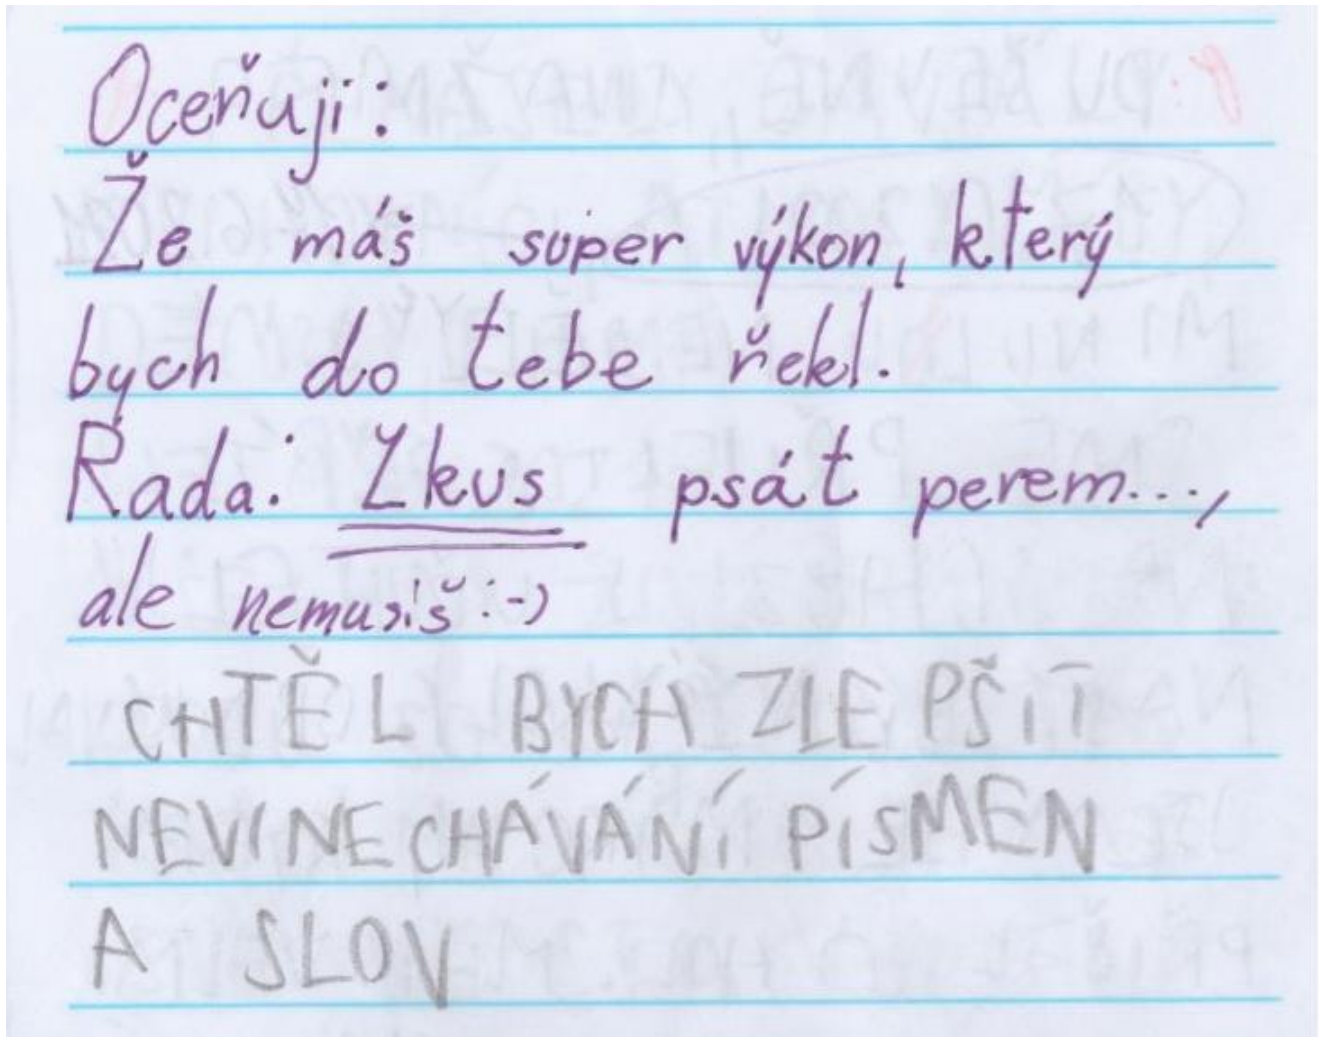 Oceňuji:
Že máš super výkon, který
bych do tebe řekl.
Rada: Zkus psát perem...,
ale nemusíš :-)
CHTĚL BYCH ZLEPŠIT
NEVINECHÁVÁNÍ PÍSMEN
A SLOV